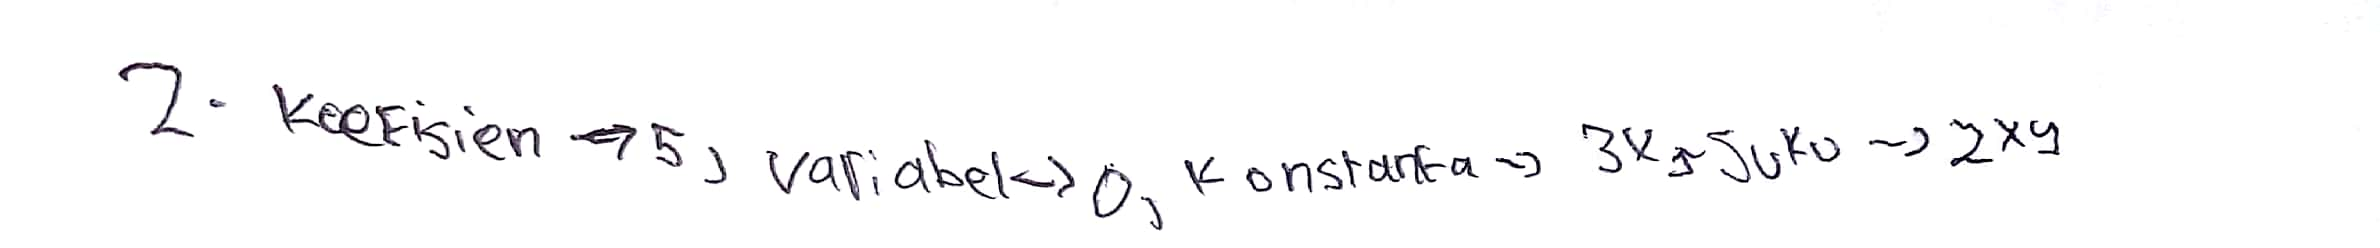 2. Keefisien → 5, variabel → 0, Konstanta → 3x, Suku → 2xy